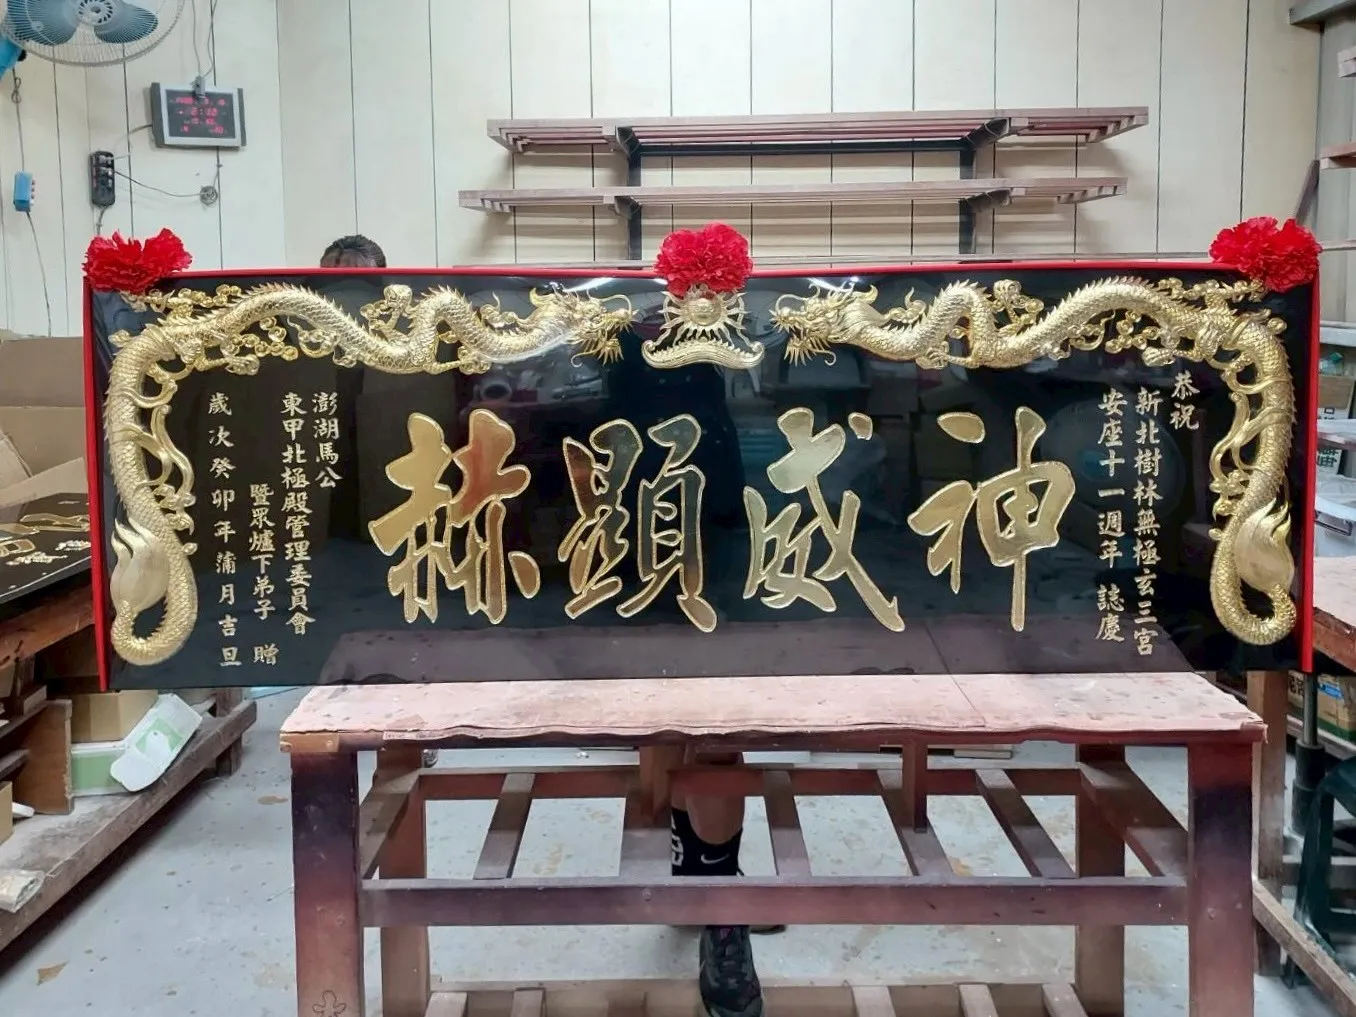 恭祝
新北樹林無極玄三宮
安座十一週年 誌慶
神威顯赫
澎湖馬公
東甲北極殿管理委員會
暨眾爐下弟子 贈
歲次癸卯年蒲月吉旦